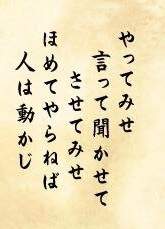 やってみせ
言って聞かせて
させてみせ
ほめてやらねば
人は動かじ